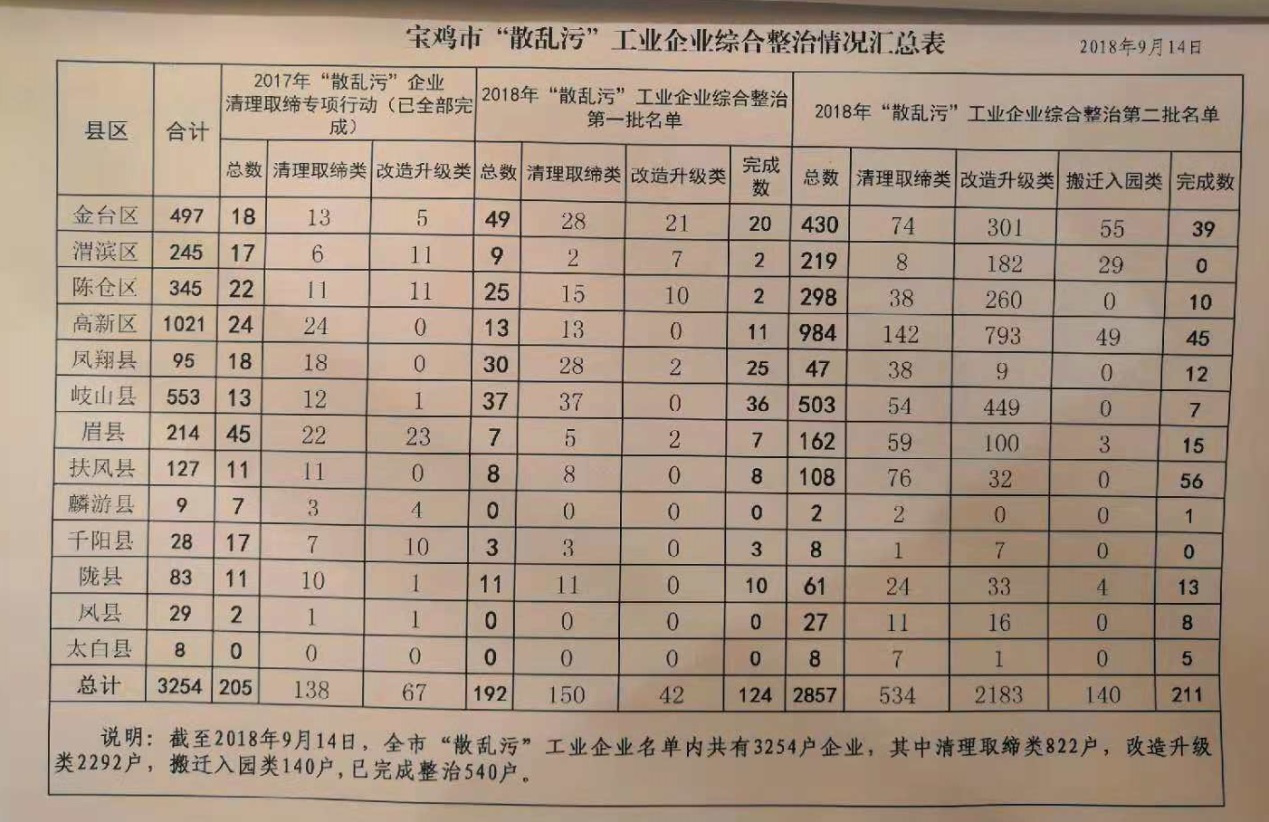 宝鸡市“散乱污”工业企业综合整治情况汇总表
2018年9月14日
县区 合计 2017年“散乱污”企业清理取缔专项行动（已全部完成） 2018年“散乱污”工业企业综合整治第一批名单 2018年“散乱污”工业企业综合整治第二批名单
总数 清理取缔类 改造升级类 总数 清理取缔类 改造升级类 完成数 总数 清理取缔类 改造升级类 搬迁入园类 完成数
金台区 497 18 13 5 49 28 21 20 430 74 301 55 39
渭滨区 245 17 6 11 9 2 7 2 219 8 182 29 0
陈仓区 345 22 11 11 25 15 10 2 298 38 260 0 10
高新区 1021 24 24 0 13 13 0 11 984 142 793 49 45
凤翔县 95 18 18 0 30 28 2 25 47 38 9 0 12
岐山县 553 13 12 1 37 37 0 36 503 54 449 0 7
眉县 214 45 22 23 7 5 2 7 162 59 100 3 15
扶风县 127 11 11 0 8 8 0 8 108 76 32 0 56
麟游县 9 7 3 4 0 0 0 0 2 2 0 0 1
千阳县 28 17 7 10 3 3 0 3 8 1 7 0 0
陇县 83 11 10 1 11 11 0 10 61 24 33 4 13
凤县 29 2 1 1 0 0 0 0 27 11 16 0 8
太白县 8 0 0 0 0 0 0 0 8 7 1 0 5
总计 3254 205 138 67 192 150 42 124 2857 534 2183 140 211
说明：截至2018年9月14日，全市“散乱污”工业企业名单内共有3254户企业，其中清理取缔类822户，改造升级
类2292户，搬迁入园类140户,已完成整治540户。